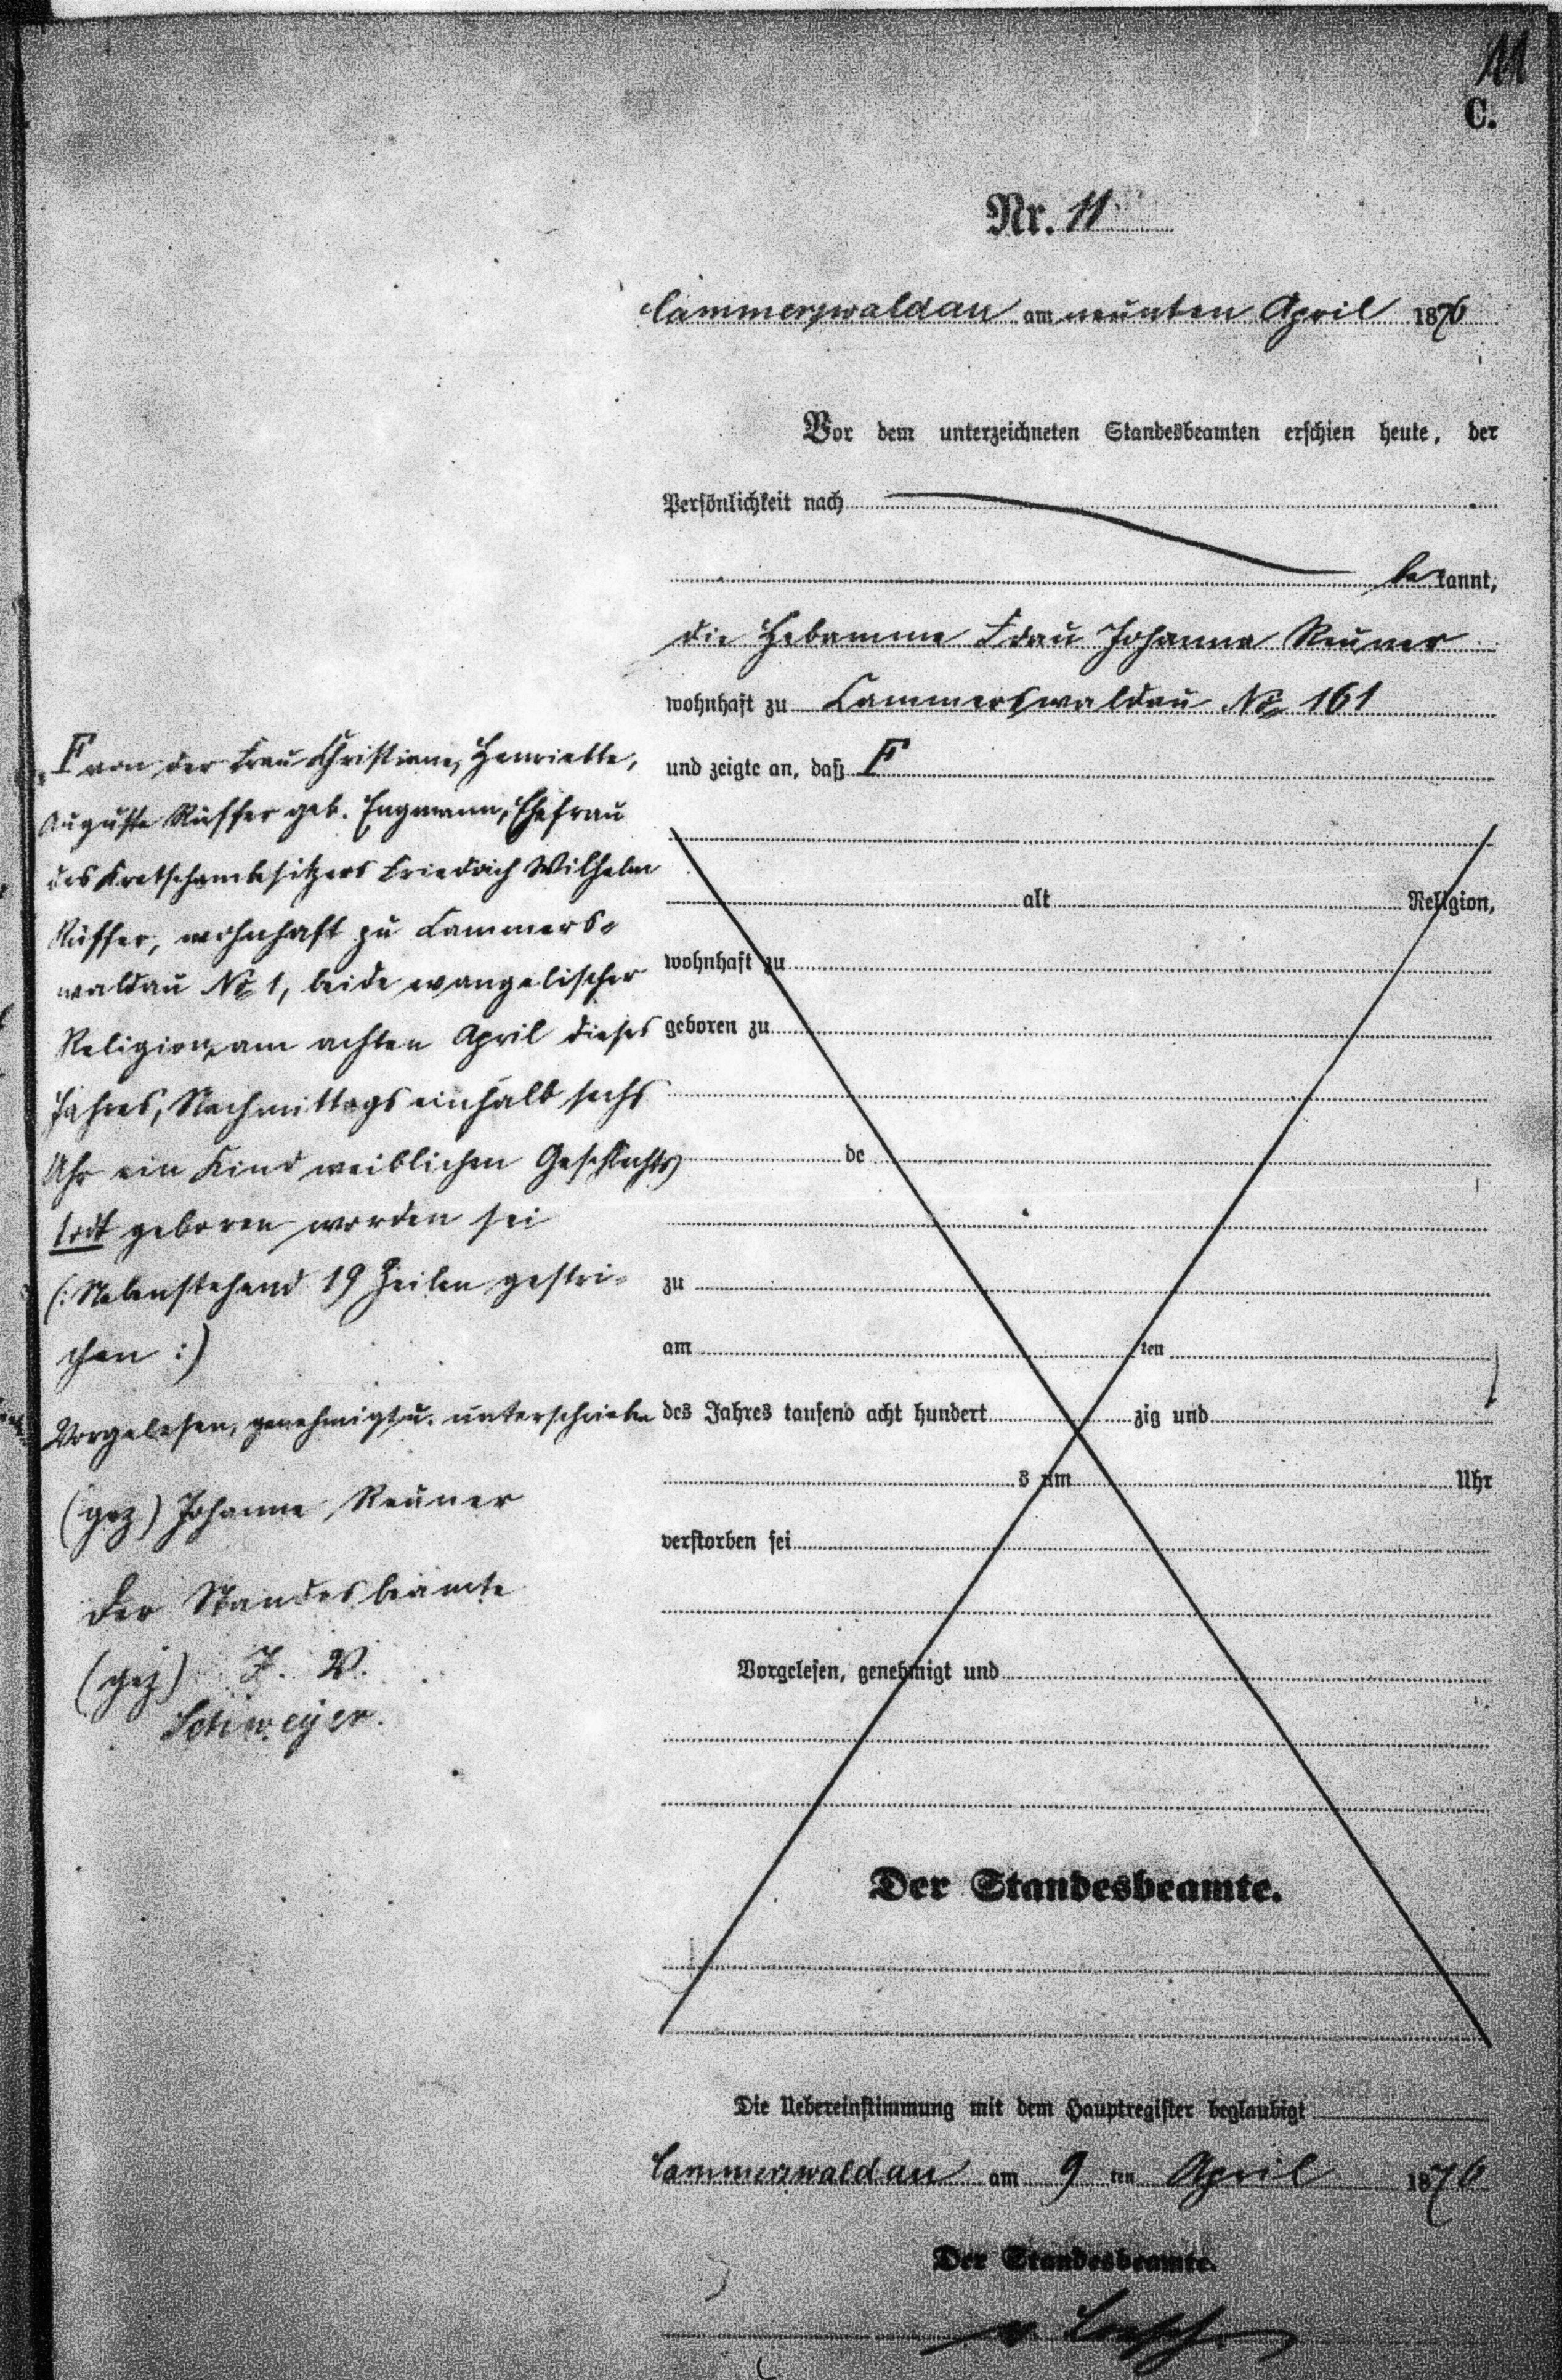 11
C.
Nr. 11
Cammerswaldau am neunten April 1876
Vor dem unterzeichneten Standesbeamten erschien heute, der
Persönlichkeit nach
bekannt,
die Hebamme Frau Johanna Reuner
wohnhaft zu Cammerswaldau No 161
und zeigte an, daß F
F von der Frau Christiane, Henriette,
Auguste Rüffer geb. Engmann, Ehefrau
des Kretschambesitzers Friedrich Wilhelm
Rüffer, wohnhaft zu Cammers-
waldau No 1, beide evangelischer
Religion, am achten April dieses
Jahres, Nachmittags einhalb sechs
Uhr ein Kind weiblichen Geschlechts
todt geboren worden sei
(: Nebenstehend 19 Zeilen gestri-
chen :)
Vorgelesen, genehmigt u. unterschrieben
(gez) Johanne Reuner
Der Standesbeamte
(gez) J. V.
Schweyer.
alt Religion,
wohnhaft zu
geboren zu
de
zu
am ten
des Jahres tausend acht hundert zig und
s um Uhr
verstorben sei
Vorgelesen, genehmigt und
Der Standesbeamte.
Die Uebereinstimmung mit dem Hauptregister beglaubigt
Cammerswaldau am 9 ten April 1876
Der Standesbeamte.